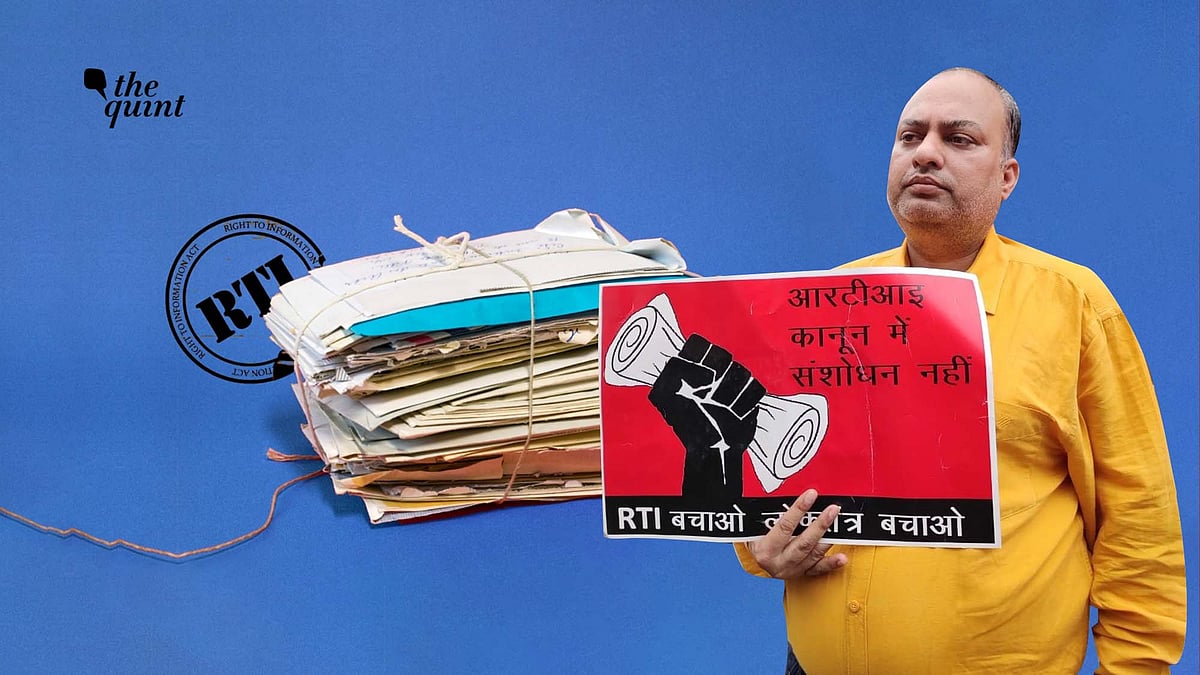 the
quint
RIGHT TO INFORMATION ACT
RTI
RIGHT TO INFORMATION ACT
आरटीआइ
कानून में
संशोधन नहीं
RTI बचाओ लोकतंत्र बचाओ